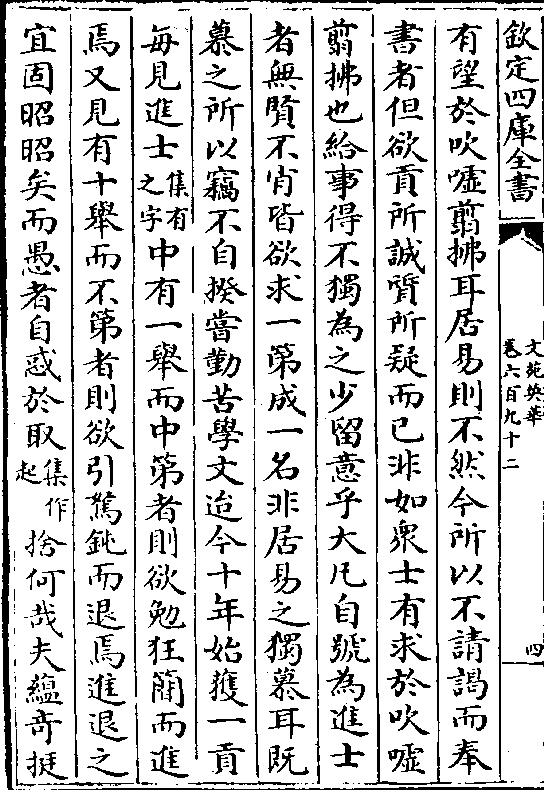 欽定四庫全書
文苑英華
卷六百九十二
四
有望於吹嘘翦拂耳居易則不然今所以不請謁而奉
書者但欲貢所誠質所疑而已非如衆士有求於吹嘘
翦拂也給事得不獨為之少留意乎大凡自號為進士
者無賢不肖皆欲求一第成一名非居易之獨慕耳既
慕之所以竊不自揆嘗勤苦學文迨今十年始獲一貢
每見進士集有之字中有一舉而中第者則欲勉狂簡而進
焉又見有十舉而不第者則欲引駑鈍而退焉進退之
宜固昭昭矣而愚者自惑於取集作起捨何哉夫蘊奇挺